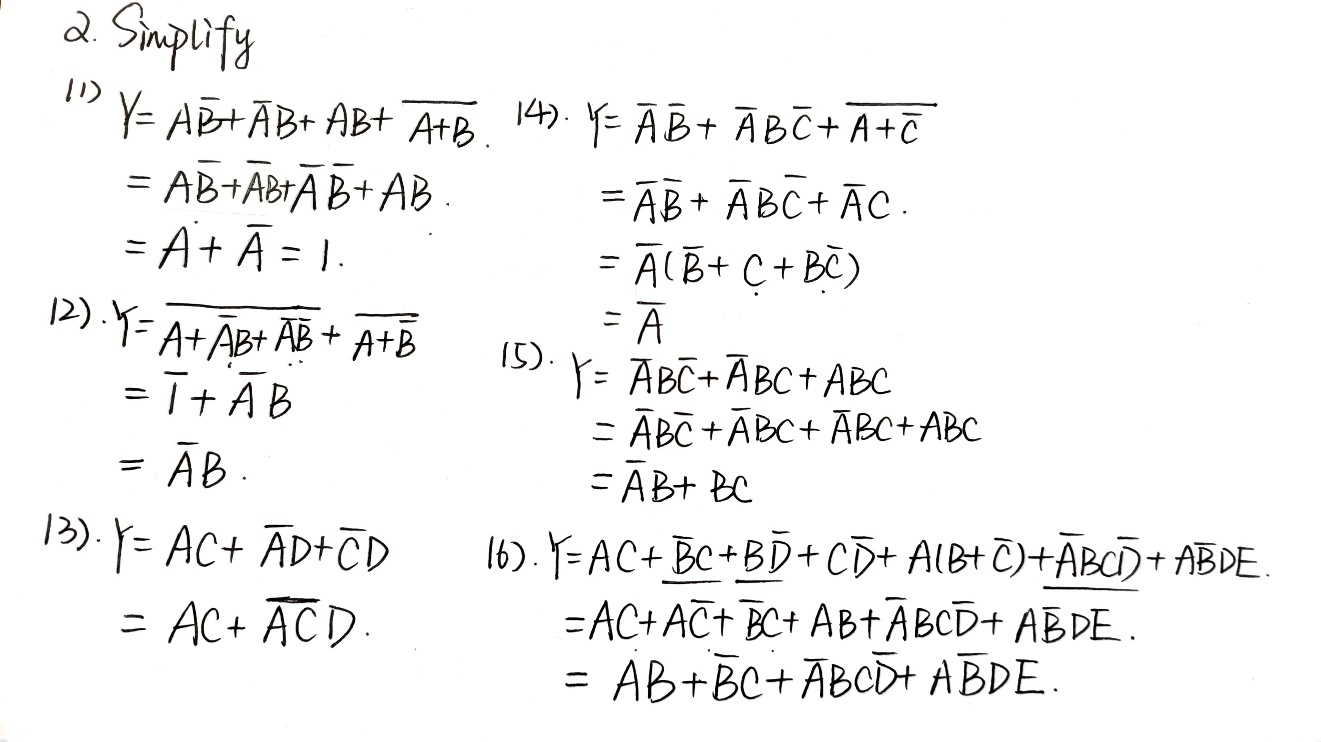 2. Simplify
11) Y= AB̅+A̅B+AB+ \overline{A+B}.
= AB̅+A̅B+A̅ B̅+AB.
= A+A̅=1.
12). Y= \overline{A+A̅B+A̅B̅} + \overline{A+B̅}
= \overline{1}+A̅B
= A̅B.
13). Y= AC+A̅D+C̅D
= AC+\overline{AC}D.
14). Y= A̅B̅+A̅BC̅+\overline{A+C̅}
= A̅B̅+A̅BC̅+A̅C.
= A̅(B̅+C+BC̅)
= A̅
15). Y= A̅BC̅+A̅BC+ABC
= A̅BC̅+A̅BC+A̅BC+ABC
= A̅B+BC
16). Y=AC+B̅C+BD̅+CD̅+A(B+C̅)+A̅BCD̅+AB̅DE.
=AC+AC̅+B̅C+AB+A̅BCD̅+AB̅DE.
= AB+B̅C+A̅BCD̅+AB̅DE.